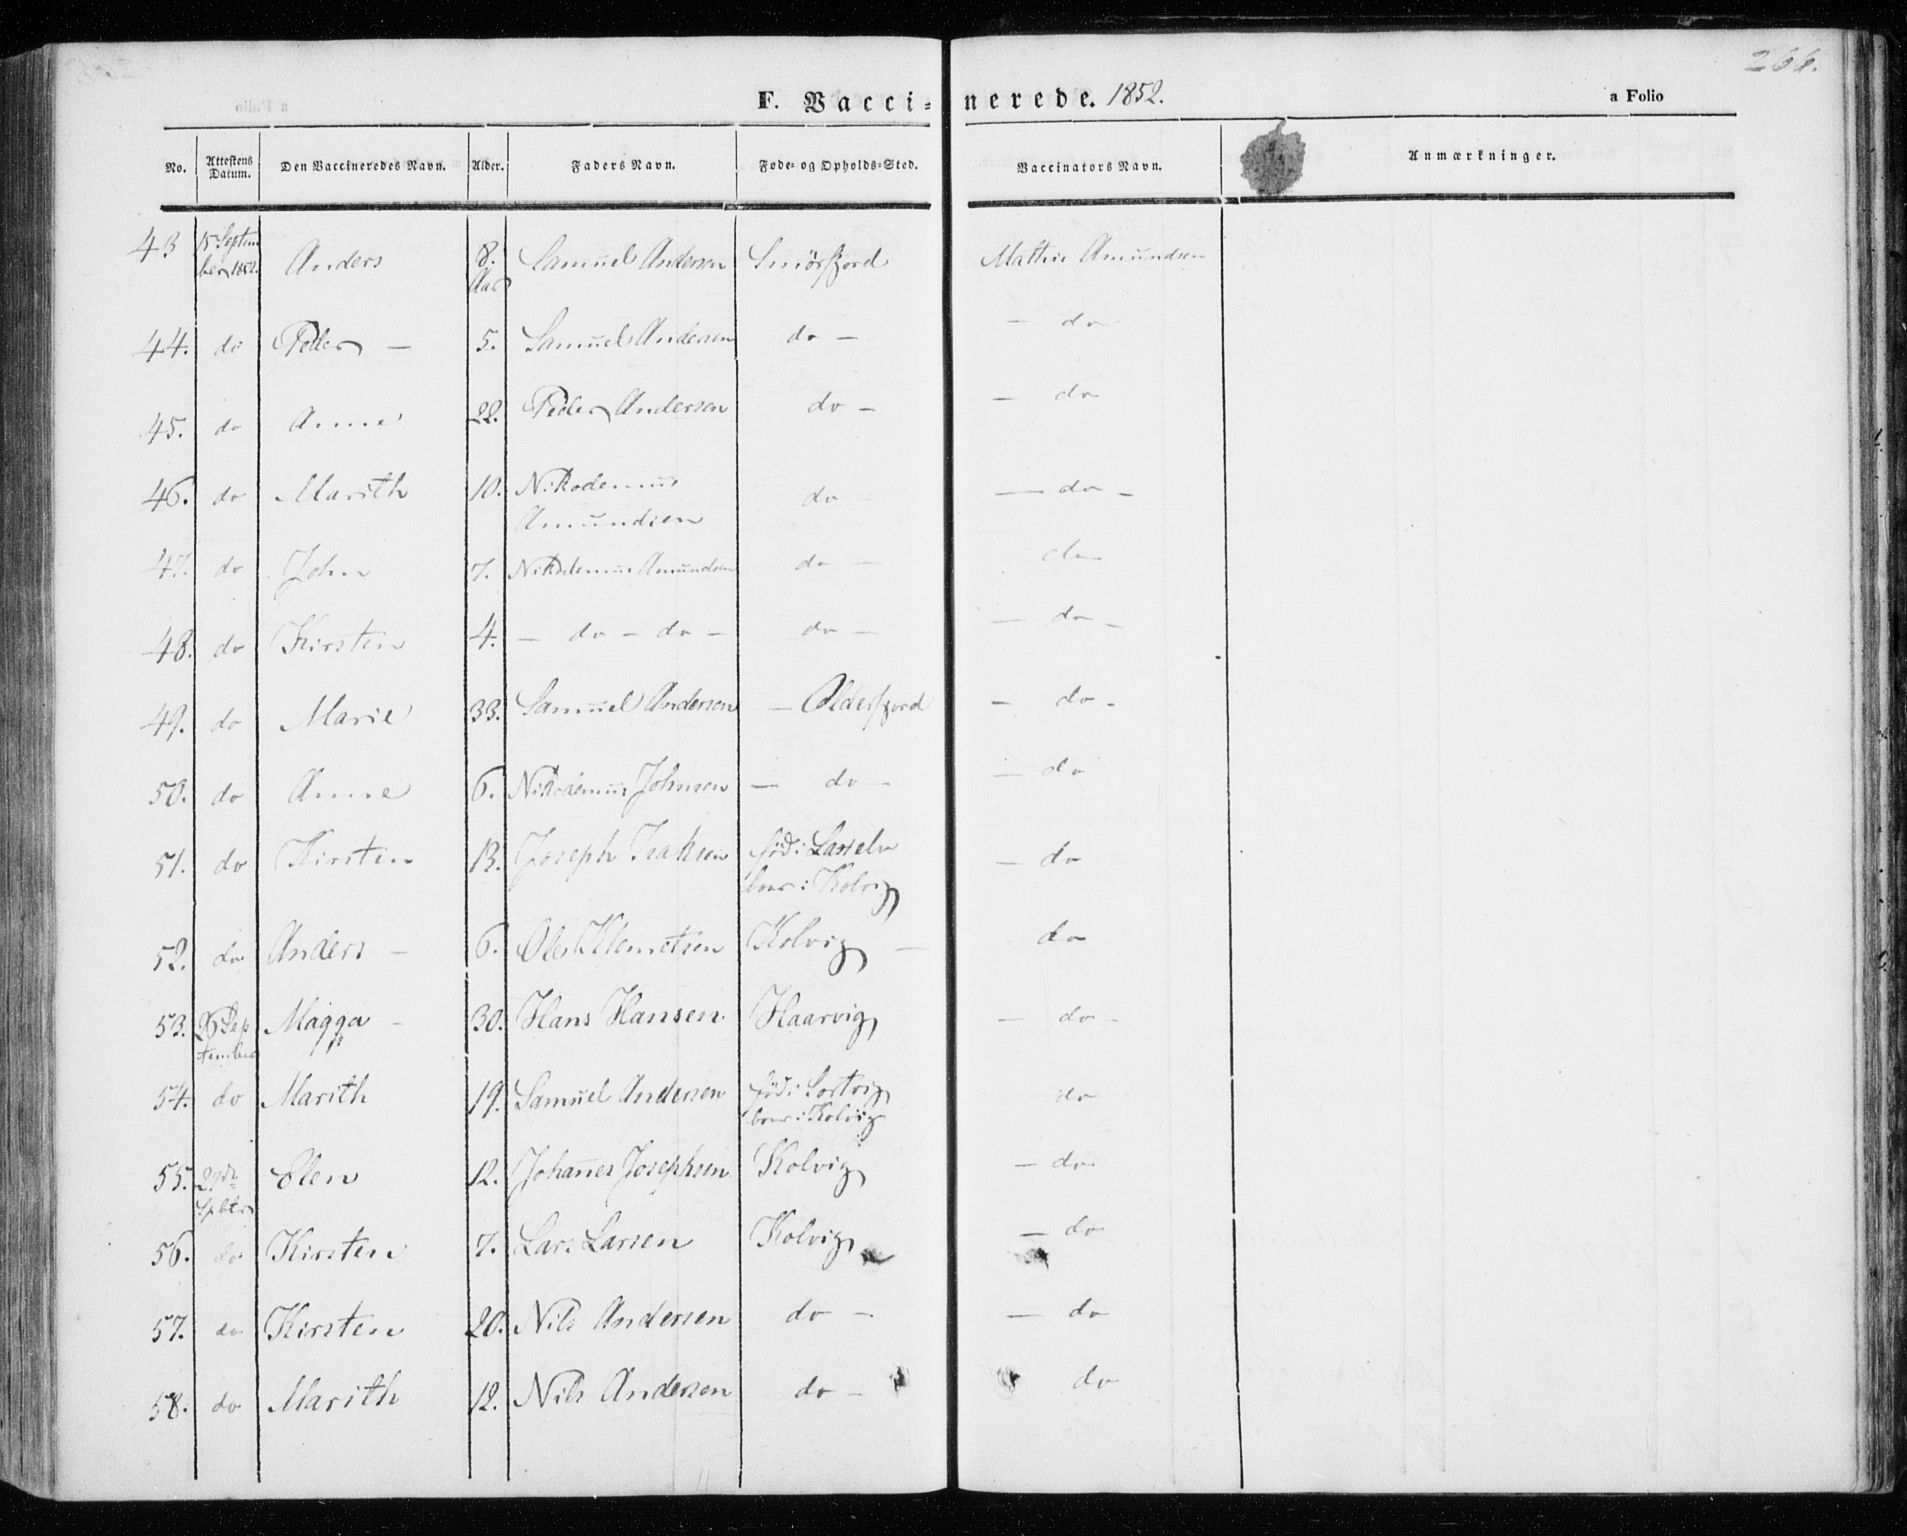 266.
F. Vacci= nerede. 1852. a Folio
No. Attestens Datum. Den Vaccineredes Navn. Alder. Faders Navn. Føde= og Opholds=Sted. Vaccinators Navn. Anmærkninger.
43 15 Septem
ber 1852. Anders 8. Aar Samuel Andersen Smörfjord Mathis Amundsen
44. do Peder — 5. Samuel Andersen do — — do
45. do Anne 22. Peder Andersen do — — do
46. do Marith 10. Nikodemus
Amundsen do — — do —
47. do John 7. Nikodemus Amundsen do — do
48. do Kirsten 4. — do — do — do — — do —
49. do Marie 33. Samuel Andersen — Olderfjord — do —
50. do Anne 6. Nikodemus Johnsen — do — — do
51. do Kirsten 13. Joseph Isaksen föd i Laxelv
boer i Kolvig — do
52. do Anders — 6. Ole Klemetsen Kolvig — do
53. Sep
tember Magga — 30. Hans Hansen Haarvig — do —
54. do Marith 19. Samuel Andersen föd i Sortvig
boer i Kolvig do
55. 29de
Septbr Elen 12. Johannes Josephsen Kolvig — do
56. do Kirsten 7. Lars Larsen Kolvig — do
57. do Kirsten 20. Nils Andersen do — — do
58. do Marith 12. Nils Andersen do — do